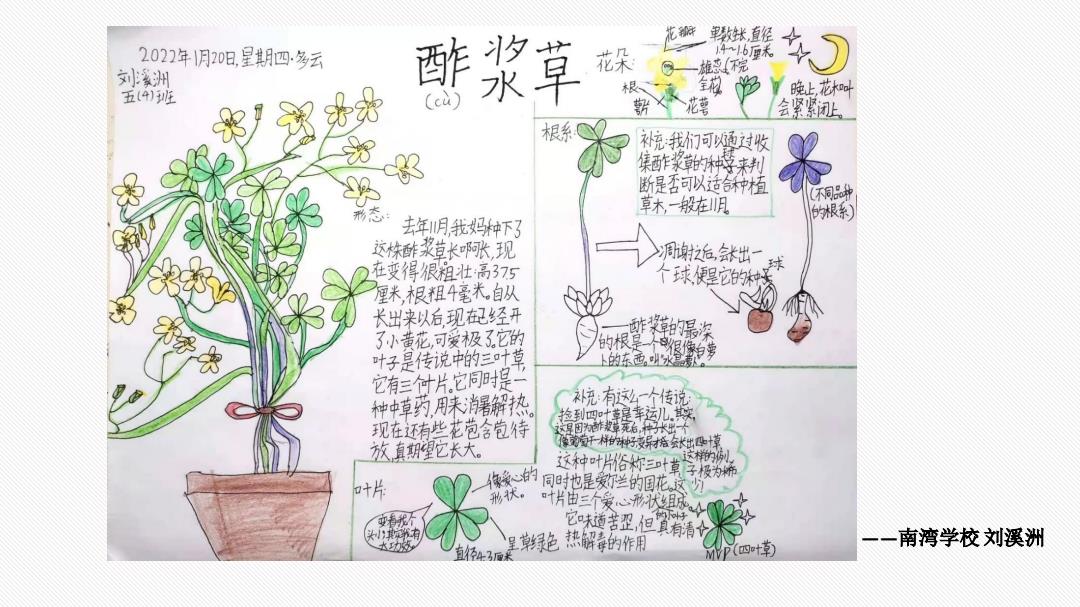 2022年1月20日,星期四·多云
刘溪洲
五(4)班
酢浆草
(cù)
形态:
去年11月,我妈种下了
这株酢浆草长啊长,现
在变得很粗壮:高37.5
厘米,根粗4毫米。自从
长出来以后,现在已经开
了小黄花,可爱极了。它的
叶子是传说中的三叶草,
它有三个叶片。它同时是一
种中草药,用来消暑解热。
现在还有些花苞含苞待
放,真期望它长大。
花朵:
花瓣
单数生长,直径
1.4~1.6厘米。
雄蕊(不完
全花)
根
花萼
晚上,花和叶
会紧紧闭上。
根系:
补充:我们可以通过收
集酢浆草的种球来判
断是否可以适合种植
草木,一般在11月。
(不同品种
的根系)
凋谢之后,会长出一
个球,便是它的种球
酢浆草的最深
的根是一个很像白萝
卜的东西。叫“水晶萝卜”。
补充:有这么一个传说:
捡到四叶草是幸运儿。其实,
这种叶片俗称三叶草,
同时也是爱尔兰的国花。这
叶片由三个爱心形状组成。
它味道苦涩,但具有清
热解毒的作用
叶片:
像爱心的
形状。
呈草绿色
直径4.3厘米
MVP(四叶草)
——南湾学校 刘溪洲